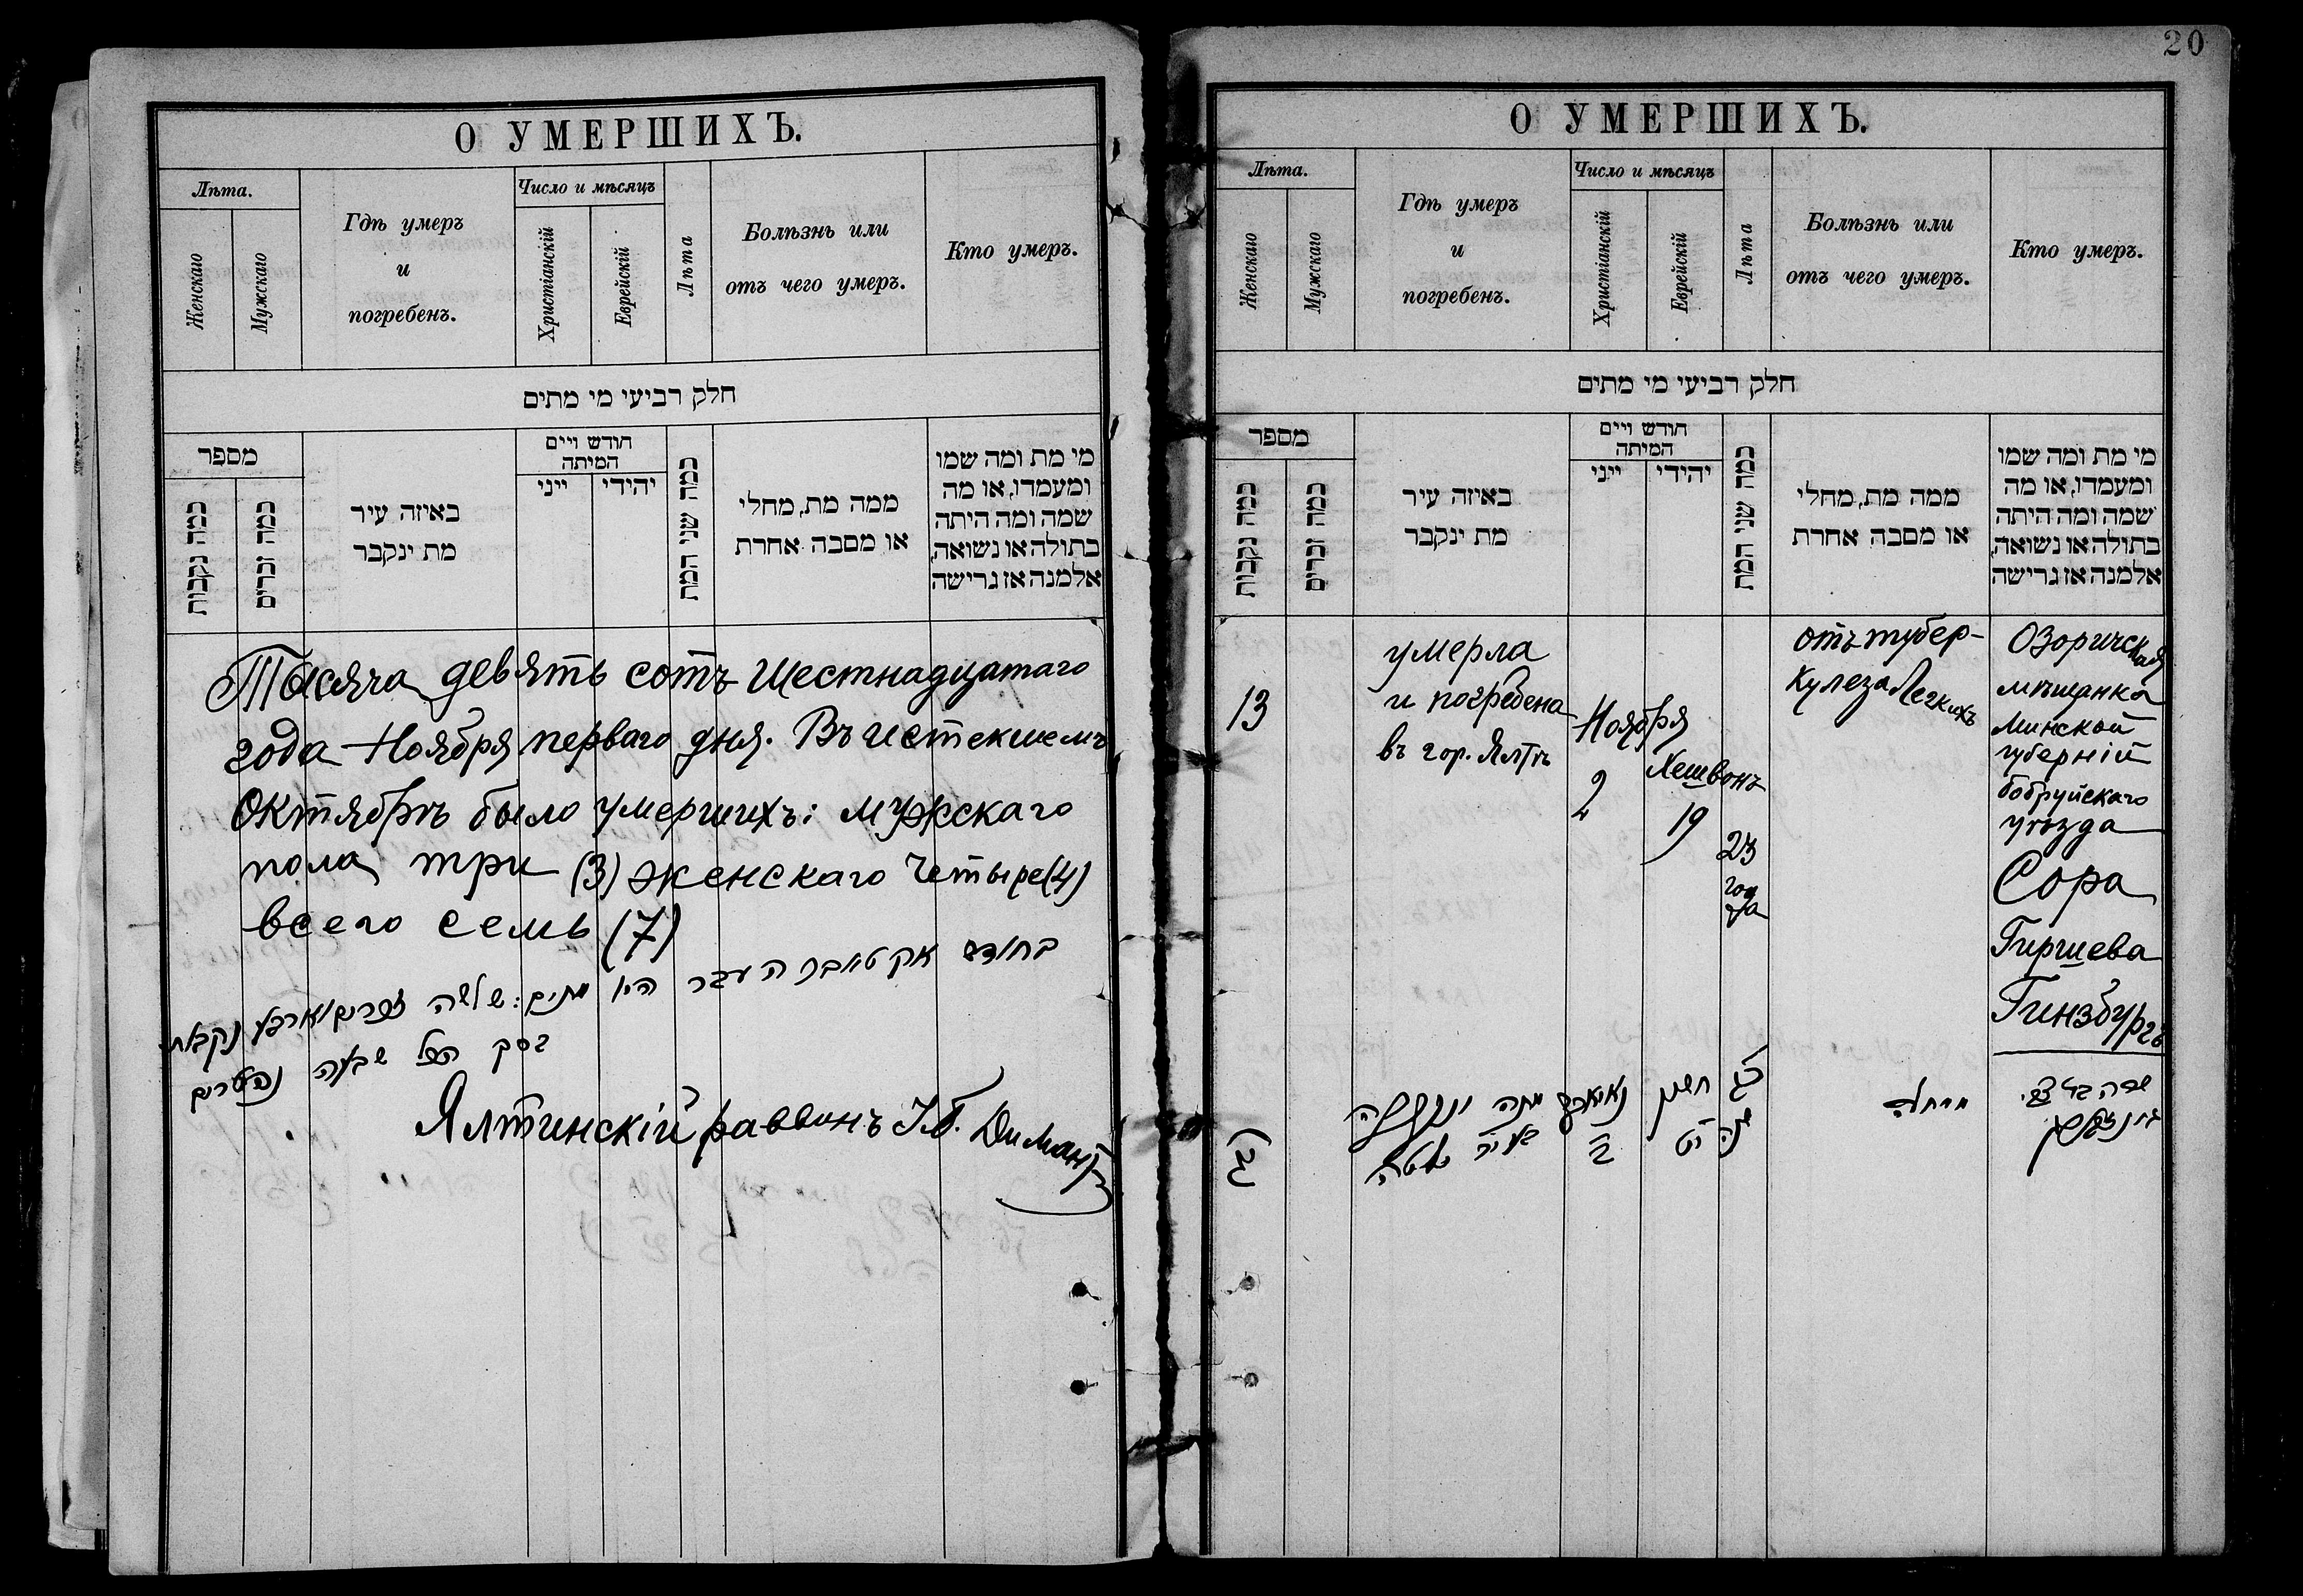 О УМЕРШИХЪ.
Лѣта.
Женскаго
Мужскаго
Гдѣ умеръ
и
погребенъ.
Число и мѣсяцъ
Христіанскій
Еврейскій
Лѣта
Болѣзнь или
отъ чего умеръ.
Кто умеръ.
חלק רביעי מי מתים
מספר
כמה נקבות
כמה זכרים
באיזה עיר
מת ינקבר
חודש ויים
המיתה
ייני
יהידי
כמה שני המת
ממה מת, מחלי
או מסבה אחרת
מי מת ומה שמו
ומעמדו, או מה
שמה ומה היתה
בתולה או נשואה,
אלמנה אז גרישה
Тысяча девять сотъ шестнадцатаго
года Ноября перваго дня. Въ истекшемъ
Октябрѣ было умершихъ: мужскаго
пола три (3) женскаго четыре (4)
всего семь (7)
בחודש אקטובר העבר היו מתים: שלשה זכרים וארבע נקבות
בסך הכל שבעה נפטרים
Ялтинскій раввинъ
20
О УМЕРШИХЪ.
Лѣта.
Женскаго
Мужскаго
Гдѣ умеръ
и
погребенъ.
Число и мѣсяцъ
Христіанскій
Еврейскій
Лѣта
Болѣзнь или
отъ чего умеръ.
Кто умеръ.
חלק רביעי מי מתים
מספר
כמה נקבות
כמה זכרים
באיזה עיר
מת ינקבר
חודש ויים
המיתה
ייני
יהידי
כמה שני המת
ממה מת, מחלי
או מסבה אחרת
מי מת ומה שמו
ומעמדו, או מה
שמה ומה היתה
בתולה או נשואה,
אלמנה אז גרישה
13
умерла
и погребена
въ гор. Ялтѣ
Ноября
2
Хешвонъ
19
23
года
отъ тубер-
кулеза Легкихъ
Озоричская
мѣщанка
Минской
губерній
бобруйскаго
уѣзда
Сора
Гиршева
Гинзбургъ
שרה בת צבי
גינצבורג
מחלה
כג
שנה
חשון
יט
מתה ונקברה
בעיר יאלטה